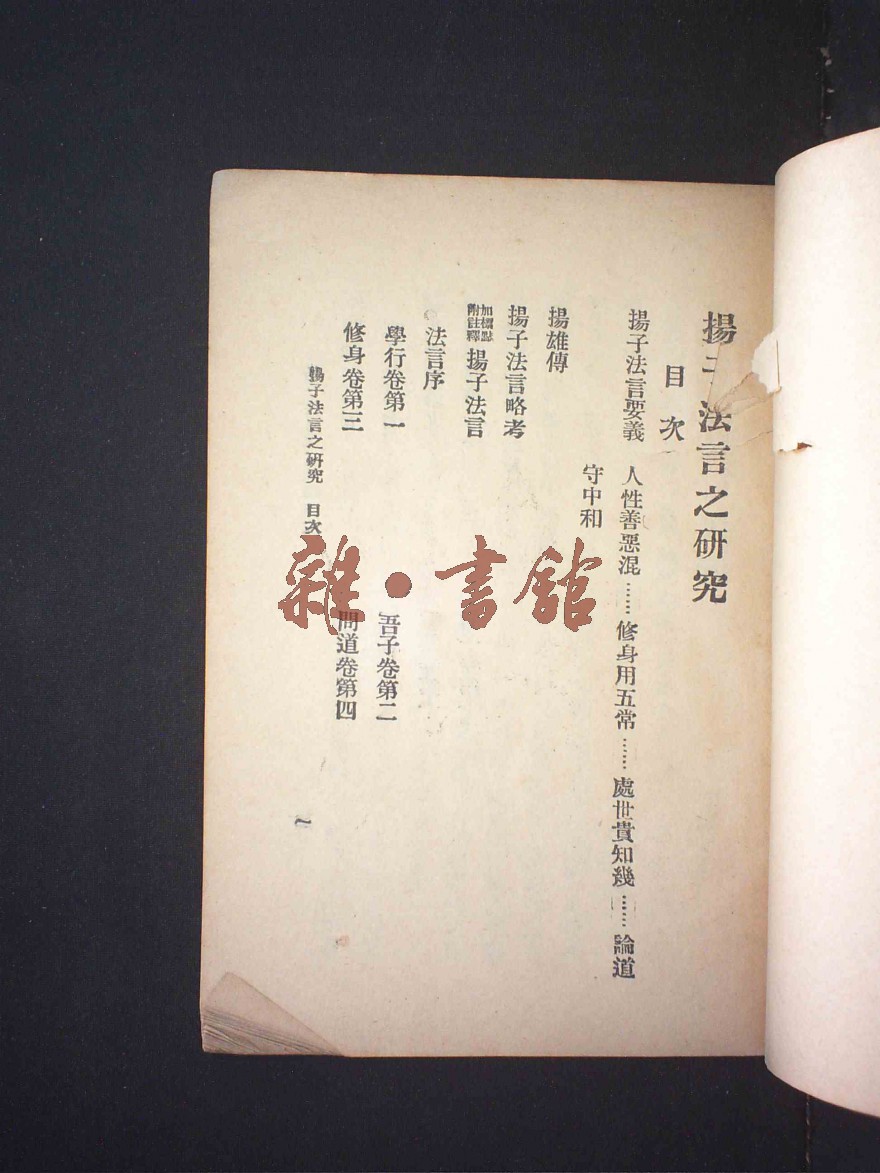 揚子法言之研究
目次
揚子法言要義 人性善惡混……修身用五常……處世貴知幾……論道
守中和
揚雄傳
揚子法言略考
加標點附註釋 揚子法言
法言序
學行卷第一 吾子卷第二
修身卷第三 問道卷第四
揚子法言之研究 目次 一
雜·書館